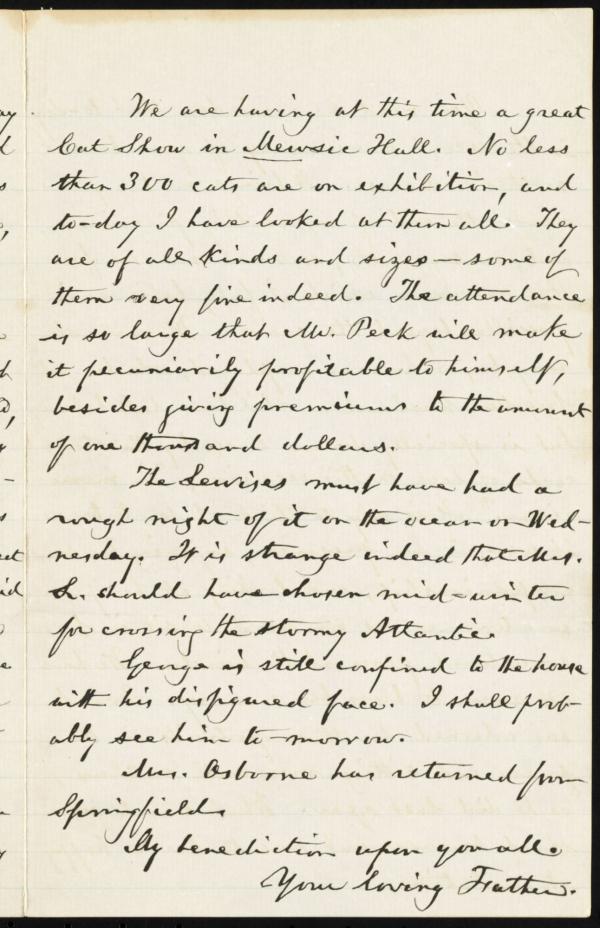 We are having at this time a great
Cat Show in Mewsic Hall. No less
than 300 cats are on exhibition, and
to-day I have looked at them all. They
are of all kinds and sizes — some of
them very fine indeed. The attendance
is so large that Mr. Peck will make
it pecuniarily profitable to himself,
besides giving premiums to the amount
of one thousand dollars.
The Lewises must have had a
rough night of it on the ocean on Wed-
nesday. It is strange indeed that Mrs.
L. should have chosen mid-winter
for crossing the stormy Atlantic.
George is still confined to the house
with his disfigured face. I shall prob-
ably see him to-morrow.
Mrs. Osborne has returned from
Springfield.
My benediction upon you all.
Your loving Father.